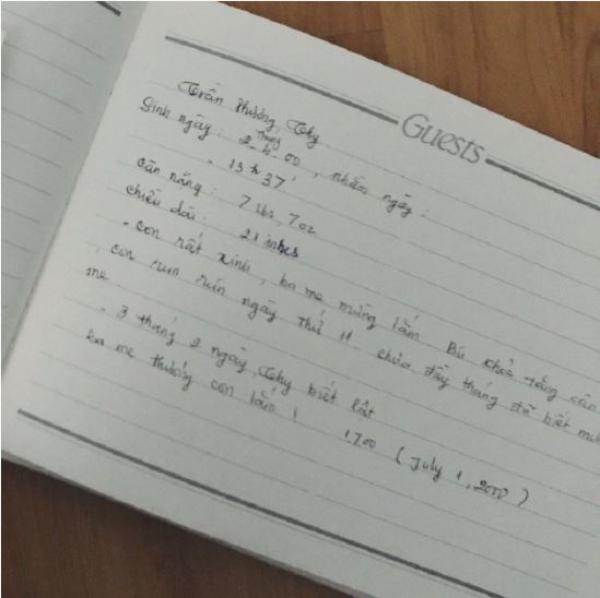 Guests
Trần Thương Thy
Sinh ngày: 2 tháng 4. 00, nhằm ngày:
. 13 h 37'
Cân nặng: 7 lbs, 7 oz
Chiều dài: 21 inches
- Con rất xinh, ba mẹ mừng lắm. Bú khỏe tăng cân
, con rụn rốn ngày thứ 11 chưa đầy tháng đã biết
mẹ
. 3 tháng 2 ngày Thy biết lật
ba mẹ thương con lắm!
1.7.00 (July 1, 2000)